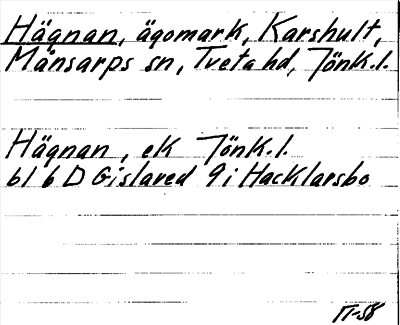 Hägnan, ägomark, Karshult,
Månsarps sn, Tveta hd, Jönk.l.
Hägnan, ek Jönk.l.
bl 6 D Gislaved 9i Hacklarsbo